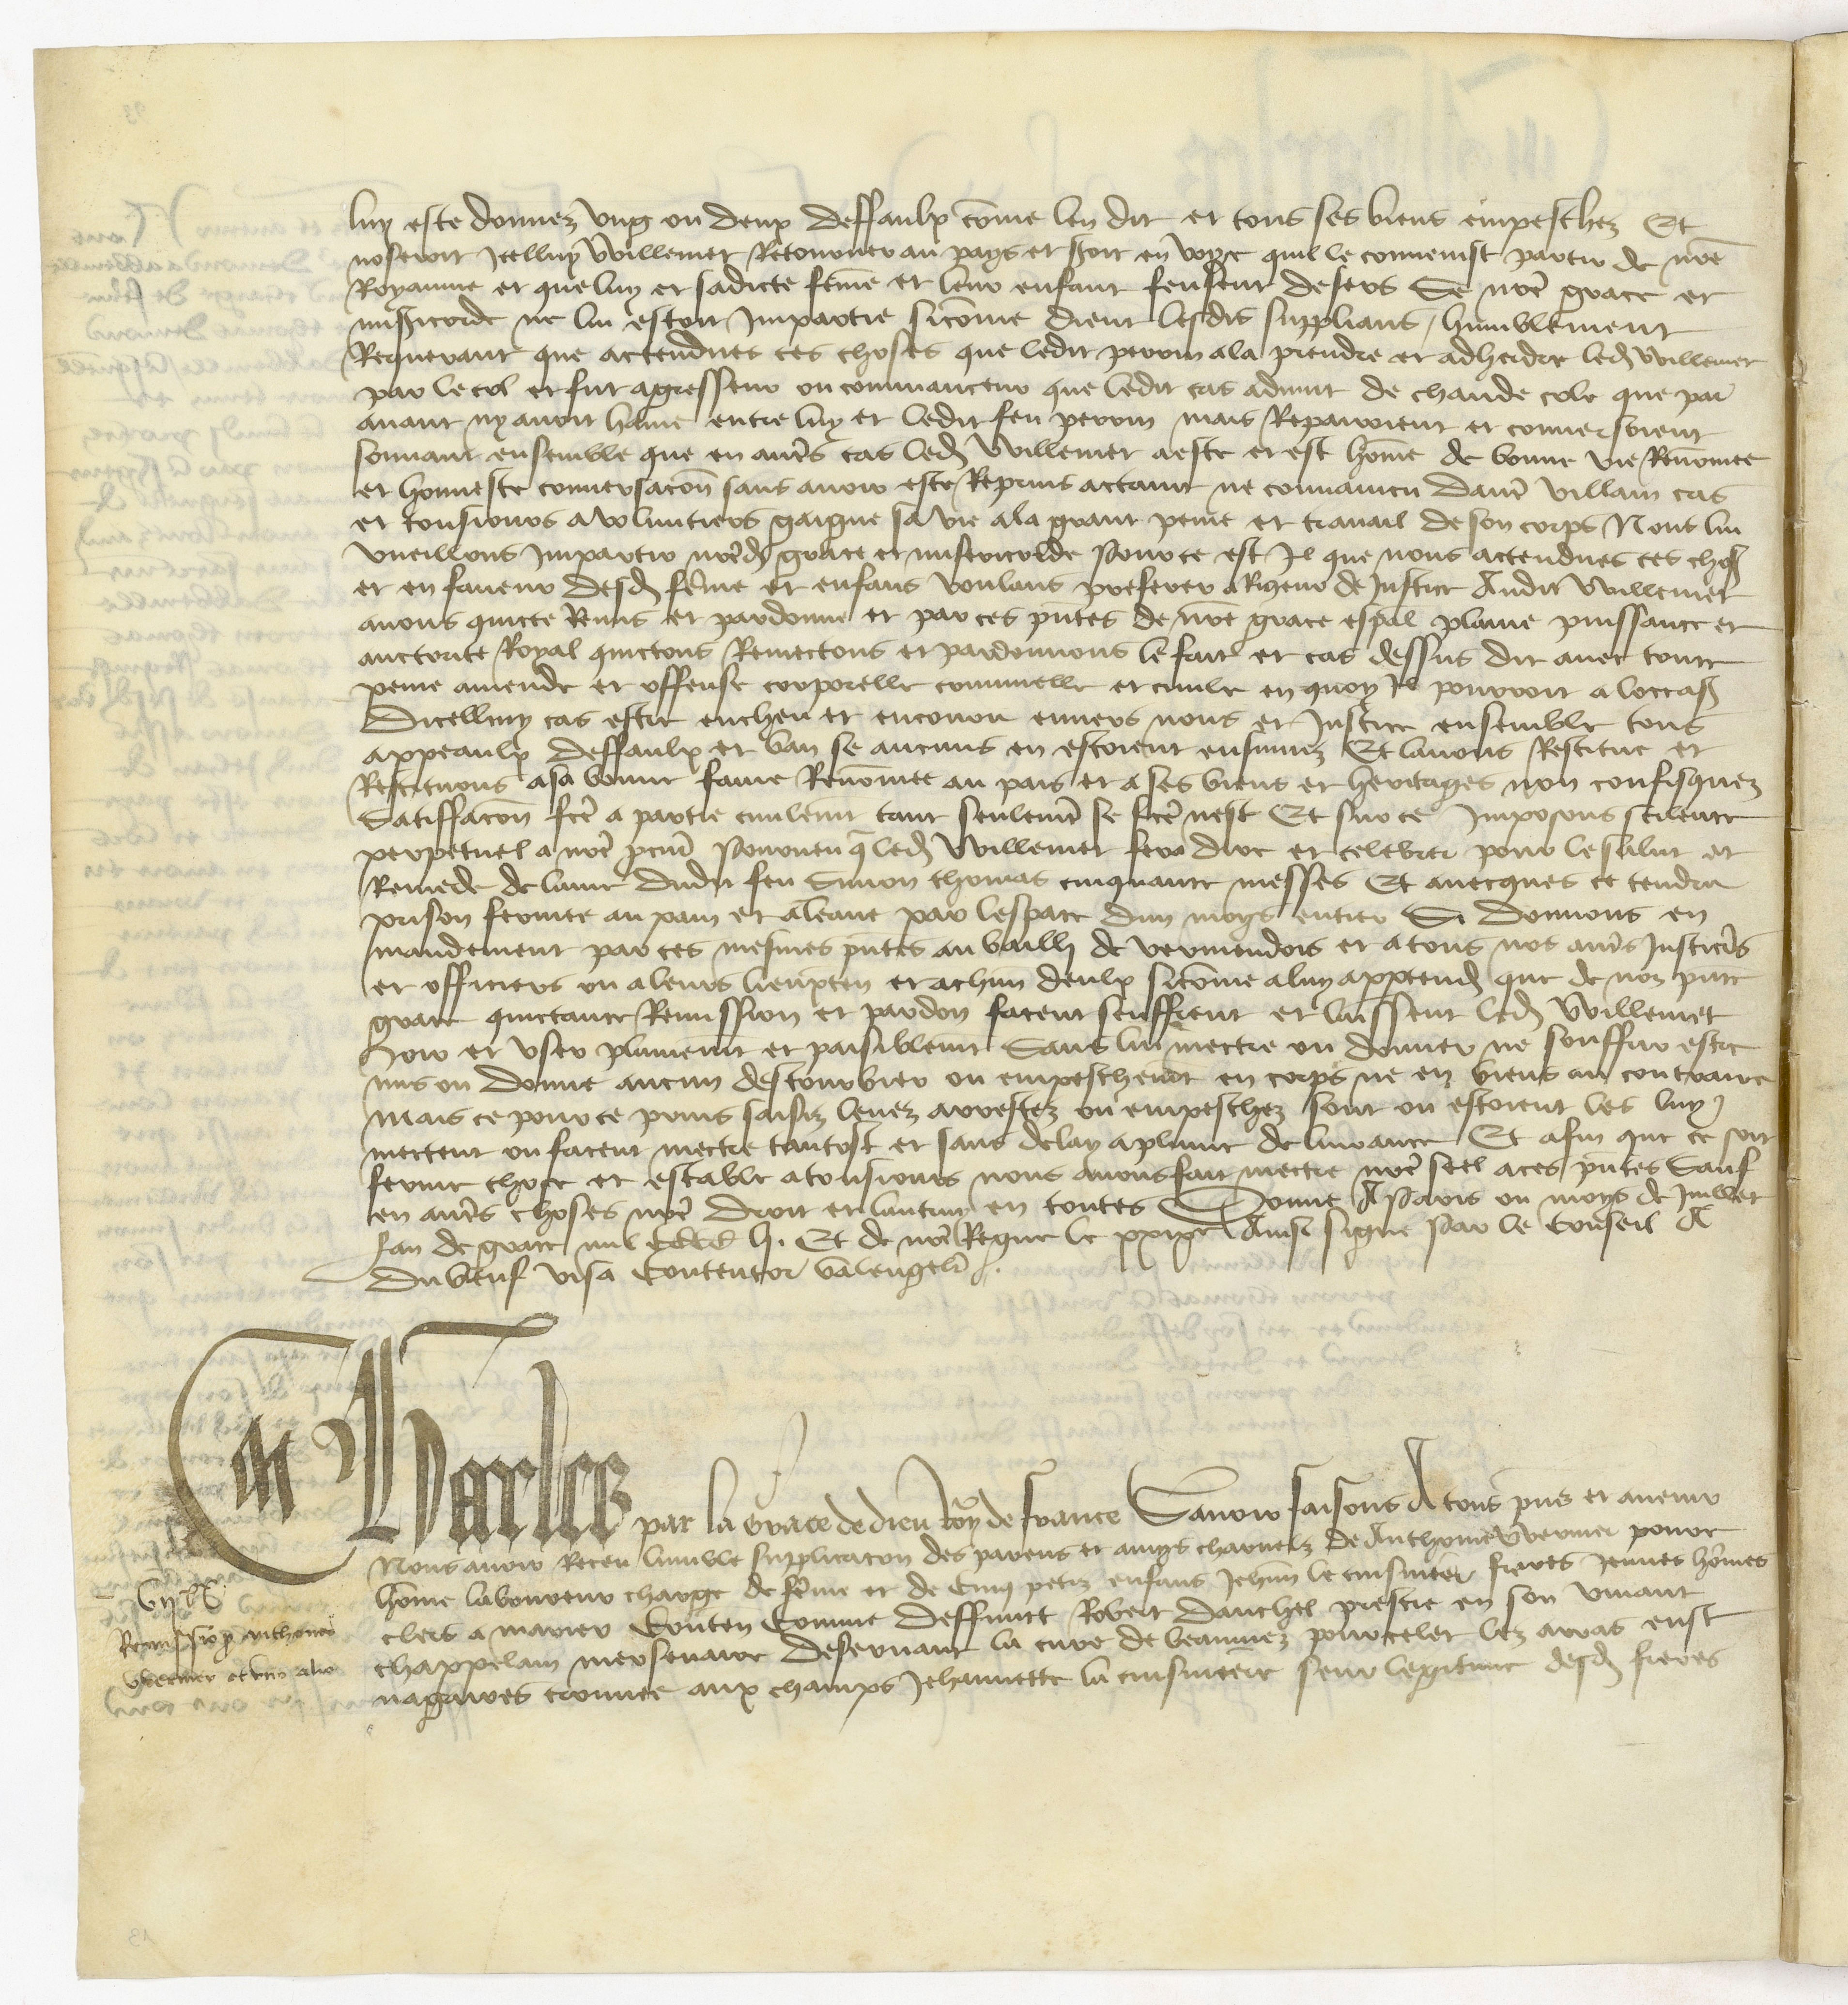 luy este donnez ung ou deux deffaulx cōme len dit et tous ses biens empeschez Et
noseroit icelluy Willemet Retourner au pays et soit en voye quil le convenist partir de nrē
Royaume et que luy et sadicte fēme et leur enfant feussent desers Se nrē grace et
misīcorde ne lui estoit Impartie sicōme dient lesdis supplians / humblement
Requerant que actendues ces choses que ledit perrin ala prendre et adherdre led Willemet
par le col et fut agresseur ou commanceur que ledit cas advint de chaude cole que par
avant ny avoit haine entre luy et ledit feu perrin mais Repairoient et conversoient
souvant ensemble que en autrēs cas led Willemet a este et est hōme de bonne vie Renōmee
et honneste conversacoñ sans avoir este Reprins actaint ne convaincu dautrē villain cas
et tousiours a voluntiers gaigne sa vie ala grant peine et travail de son corps Nous lui
vueillons Impartir nrēd grace et misericorde Pource est Il que nous actendues ces chos
et en faveur desd fēme et enfans voulans preferer a Rigeur de Justice Audit Willemet
avons quicte Remis et pardonne et par ces pn̄tes de nrē grace espāl plaine puissance et
auctorite Royal quictons Remectons et pardonnons le fait et cas dessus dit avec toute
peine amende et offense corporelle criminelle et civile en quoy Il pourroit a loccas
Dicelluy cas estre encheu et encouru envers nous et Justice ensemble tous
appeaulx deffaulx et ban se aucuns en estoient ensuiviz Et lavons Restitue et
Restituons asa bonne fame Renōmee au pais et a ses biens et heritages non confisquez
Satisfacoñ fctē a partie civilemt tant seulemt se fctē nest Et sur ce Imposons scilence
perpetuel a nrē pcur̄ Pourveu q̄ led Willemet fera dire et celebrer pour le salut et
Remede de lame dudit feu Simon thomas cinquante messes Et avecques ce tendra
prison fermee au pain et a leaue par lespace dun moys entier Si donnons en
mandement par ces mesmes pn̄tes au bailli de vermendois et a tous nos autrēs Justiciēs
et officiers ou a leurs lieuxten et achun deulx sicōme a luy apptend que de noz pn̄te
grace quictance Remission et pardon facent seuffrent et laissent led Willemet
Joir et user plainemt et paisiblemt Sans lui mectre ou donner ne souffrir estre
mis ou donne aucun destourbier ou empeschemt en corps ne en biens au contraire
Mais ce pource prins saisiz levez arrestez ou empeschez sont ou estoient les luy
mectent ou facent mectre tantost et sans delay a plaine delivrance Et afin que ce soit
ferme chose et estable atousiours nous avons fait mectre nrē seel a ces pn̄tes Sauf
en autrēs choses nrē droit et lautruy en toutes Donne A Paris ou moys de Juillet
Lan de grace mil CCCC
Et de nrē Regne le xxixe Ainsi signe Par le Conseil A
Dubeuf visa Contentor valengelier
Charles par la grace de dieu Roy de france Savoir faisons A tous pn̄s et avenir
Nous avoir Receu lumble supplicacon des parens et amys charnelz de Anthoine Vvermer povre
hōme laboureur charge de fēme et de cinq petiz enfans Jehan le cuisinier freres jeunes hōmes
clers a marier Conten Comme deffunct Robert Dauchel prestre en son vivant
chappelain mersenaire deservant la cure de beaumez pourcelet lez arras eust
nagaires trouvee aux champs Jehannette la cuisiniere seur legitime desd freres
Remissio p̄ anthonio
vvermer et uno alio